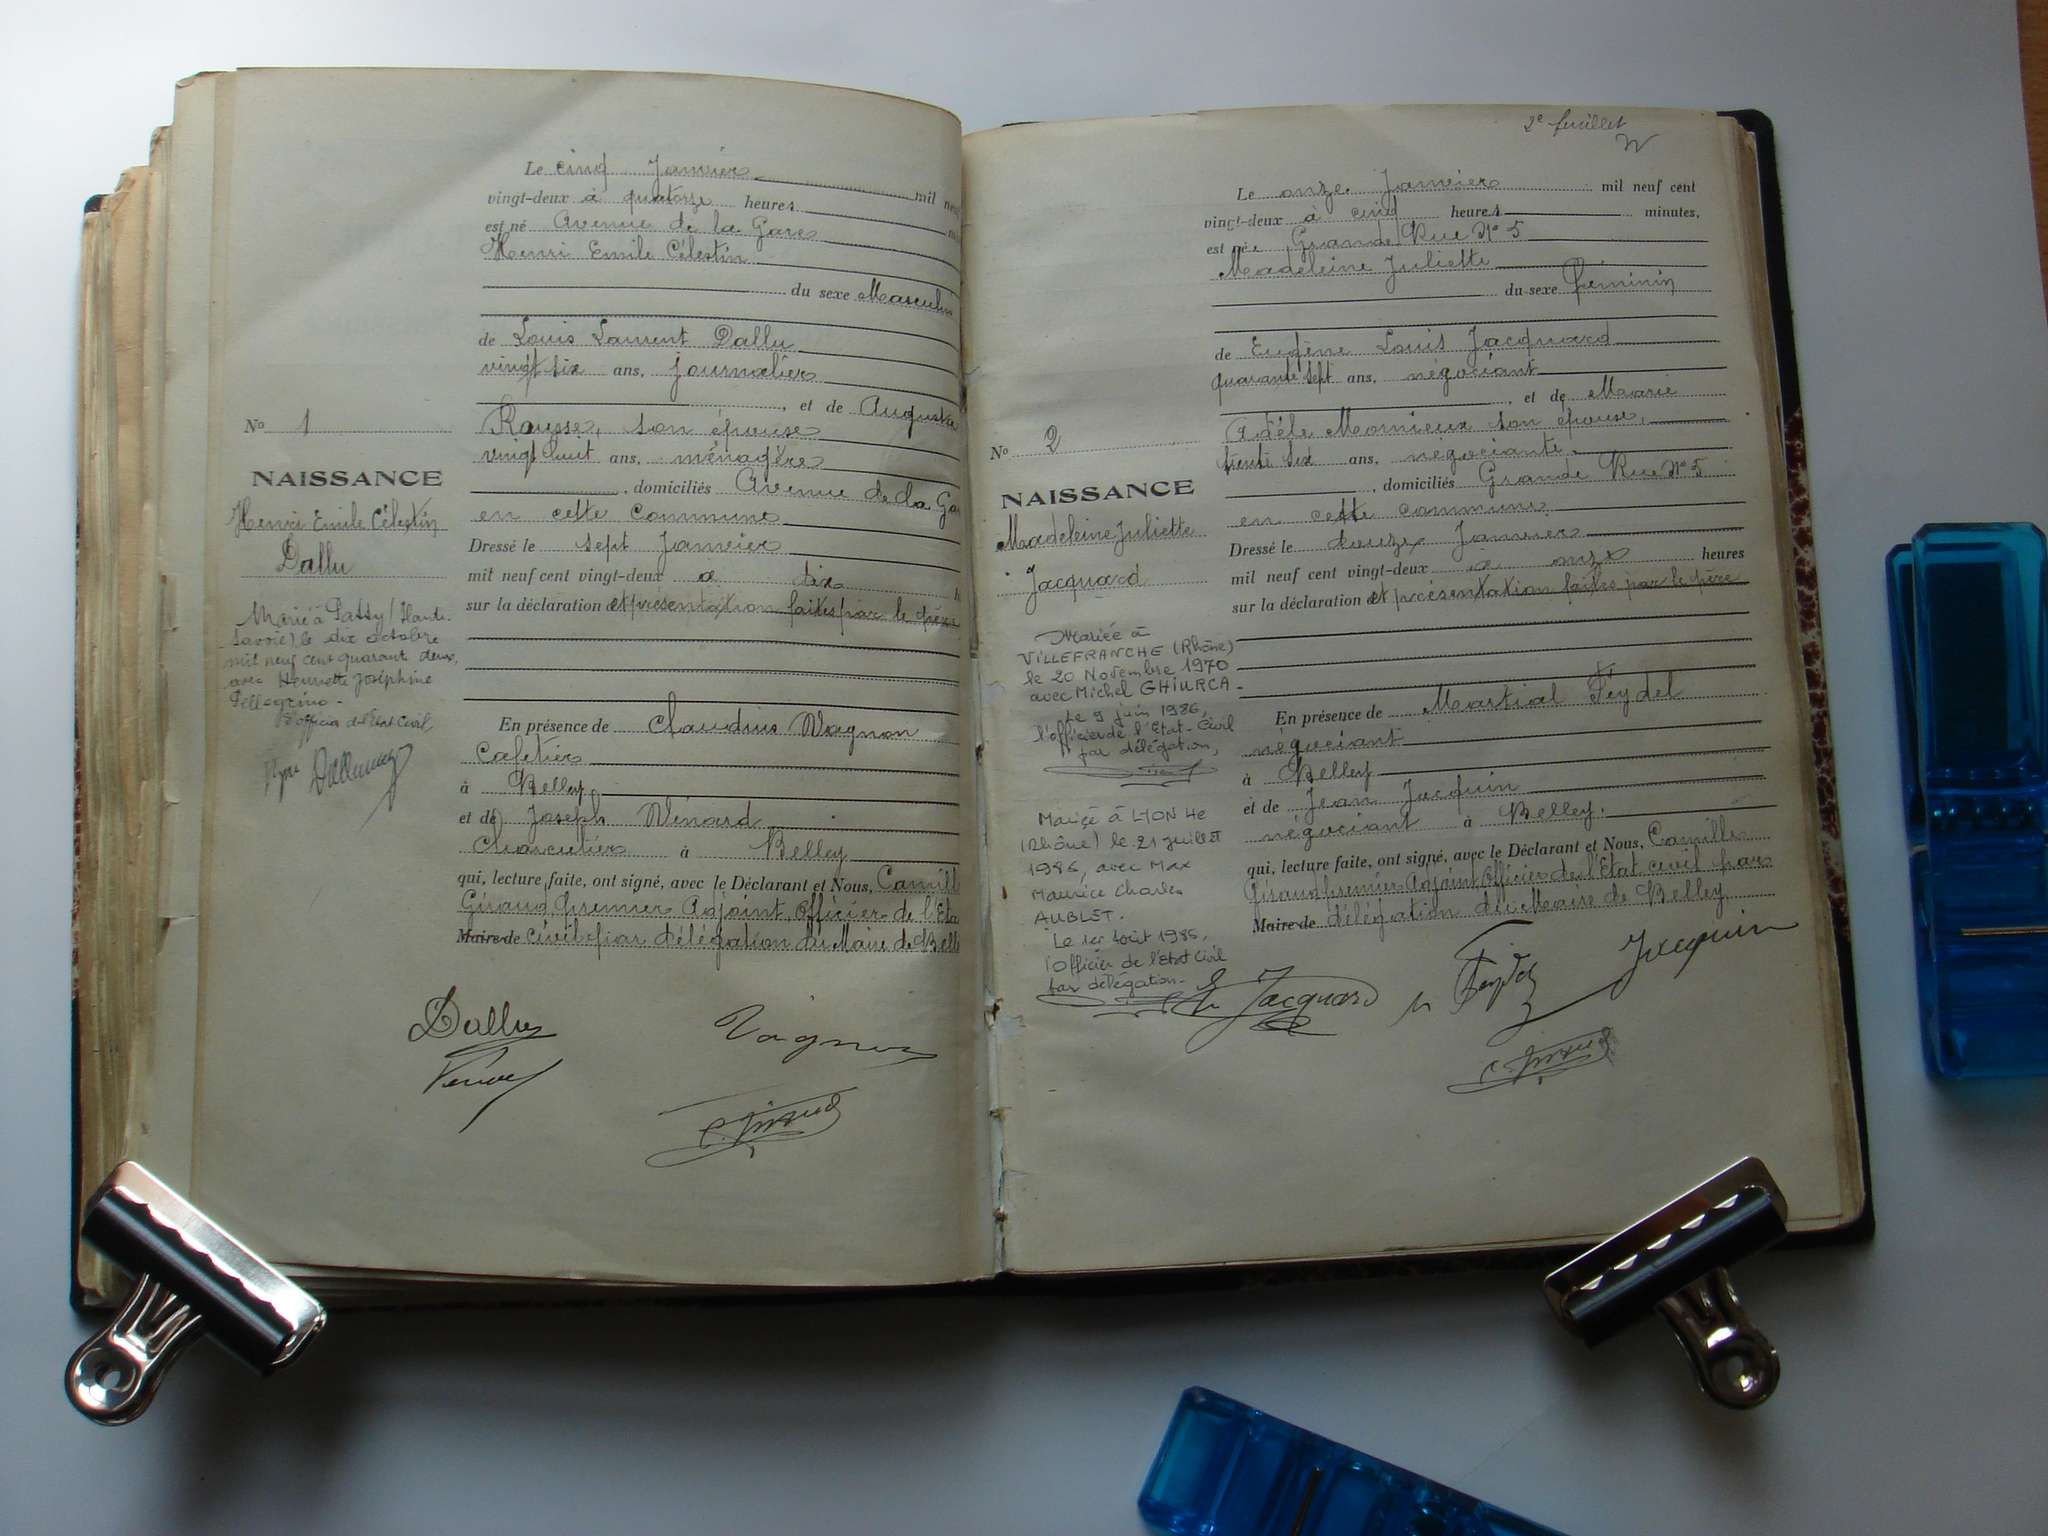 Le cinq Janvier mil neuf
vingt-deux à quatorze heures
est né Avenue de la Gare
Henri Emile Célestin
du sexe Masculin
de Louis Laurent Dallu
vingt six ans, journalier
, et de Augusta
Rousse, son épouse
vingt huit ans, ménagère
, domiciliés Avenue de la Ga
en cette commune
Dressé le sept Janvier
mil neuf cent vingt-deux à dix h
sur la déclaration et présentation faites par le père
En présence de Claudius Vagnon
Cafetier
à Belley
et de Joseph Vénard
Charcutier à Belley
qui, lecture faite, ont signé, avec le Déclarant et Nous, Camill
Giraud, premier Adjoint, Officier de l'Eta
Maire de civil par délégation du Maire de Belle
No 1
NAISSANCE
Henri Emile Célestin
Dallu
Marié à Passy (Haute-
Savoie) le dix octobre
mil neuf cent quarante deux,
avec Henriette Joséphine
Pellegrino -
l'officier de l'Etat Civil
Dallu
C. Giraud
2e feuillet
Le onze Janvier mil neuf cent
vingt-deux à cinq heures minutes,
est née Grande Rue No 5
Madeleine Juliette
du sexe féminin
de Eugène Louis Jacquard
quarante sept ans, négociant
, et de Marie
Adèle Monnieux son épouse,
trente six ans, négociante.
, domiciliés Grande Rue No 5
en cette commune
Dressé le douze Janvier
mil neuf cent vingt-deux à onze heures
sur la déclaration et présentation faites par le père
En présence de Martial Feydel
négociant
à Belley
et de Jean Jacquin
négociant à Belley.
qui, lecture faite, ont signé, avec le Déclarant et Nous, Camille
Giraud premier Adjoint, Officier de l'Etat civil par
Maire de délégation du Maire de Belley
No 2
NAISSANCE
Madeleine Juliette
Jacquard
Mariée à
VILLEFRANCHE (Rhône)
le 20 Novembre 1970
avec Michel GHIURCA -
Le 9 juin 1986,
l'officier de l'Etat-Civil
par délégation,
Mariée à LYON 4e
(Rhône) le 21 juillet
1986, avec Max
Maurice Charles
AUBLET.
Le 1er Août 1986,
l'Officier de l'état Civil
par délégation -
Jacquard
Feydel
Jacquin
C. Giraud